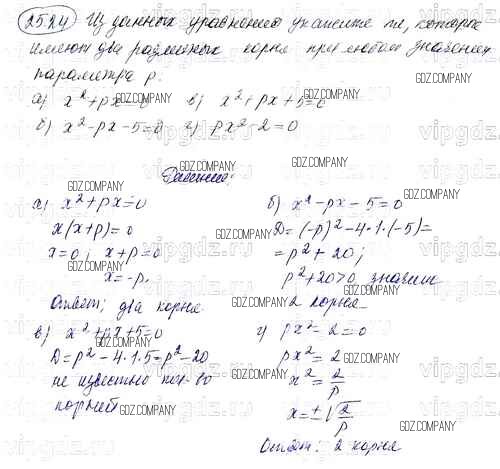 25.24 Из данных уравнений укажите те, которые
имеют два различных корня при любом значении
параметра p.
а) x²+px=0 в) x²+px+5=0
б) x²-px-5=0 г) px²-2=0
Решение:
а) x²+px=0
x(x+p)=0
x=0, x+p=0
x=-p.
Ответ: два корня
б) x²-px-5=0
D=(-p)²-4·1·(-5)=
=p²+20;
p²+20>0, значит
2 корня
в) x²+px+5=0
D=p²-4·1·5=p²-20
не известно кол-во
корней
г) px²-2=0
px²=2
x²=2/p
x=±√2/p
Ответ: 2 корня
GDZ.COMPANY
vipgdz.ru